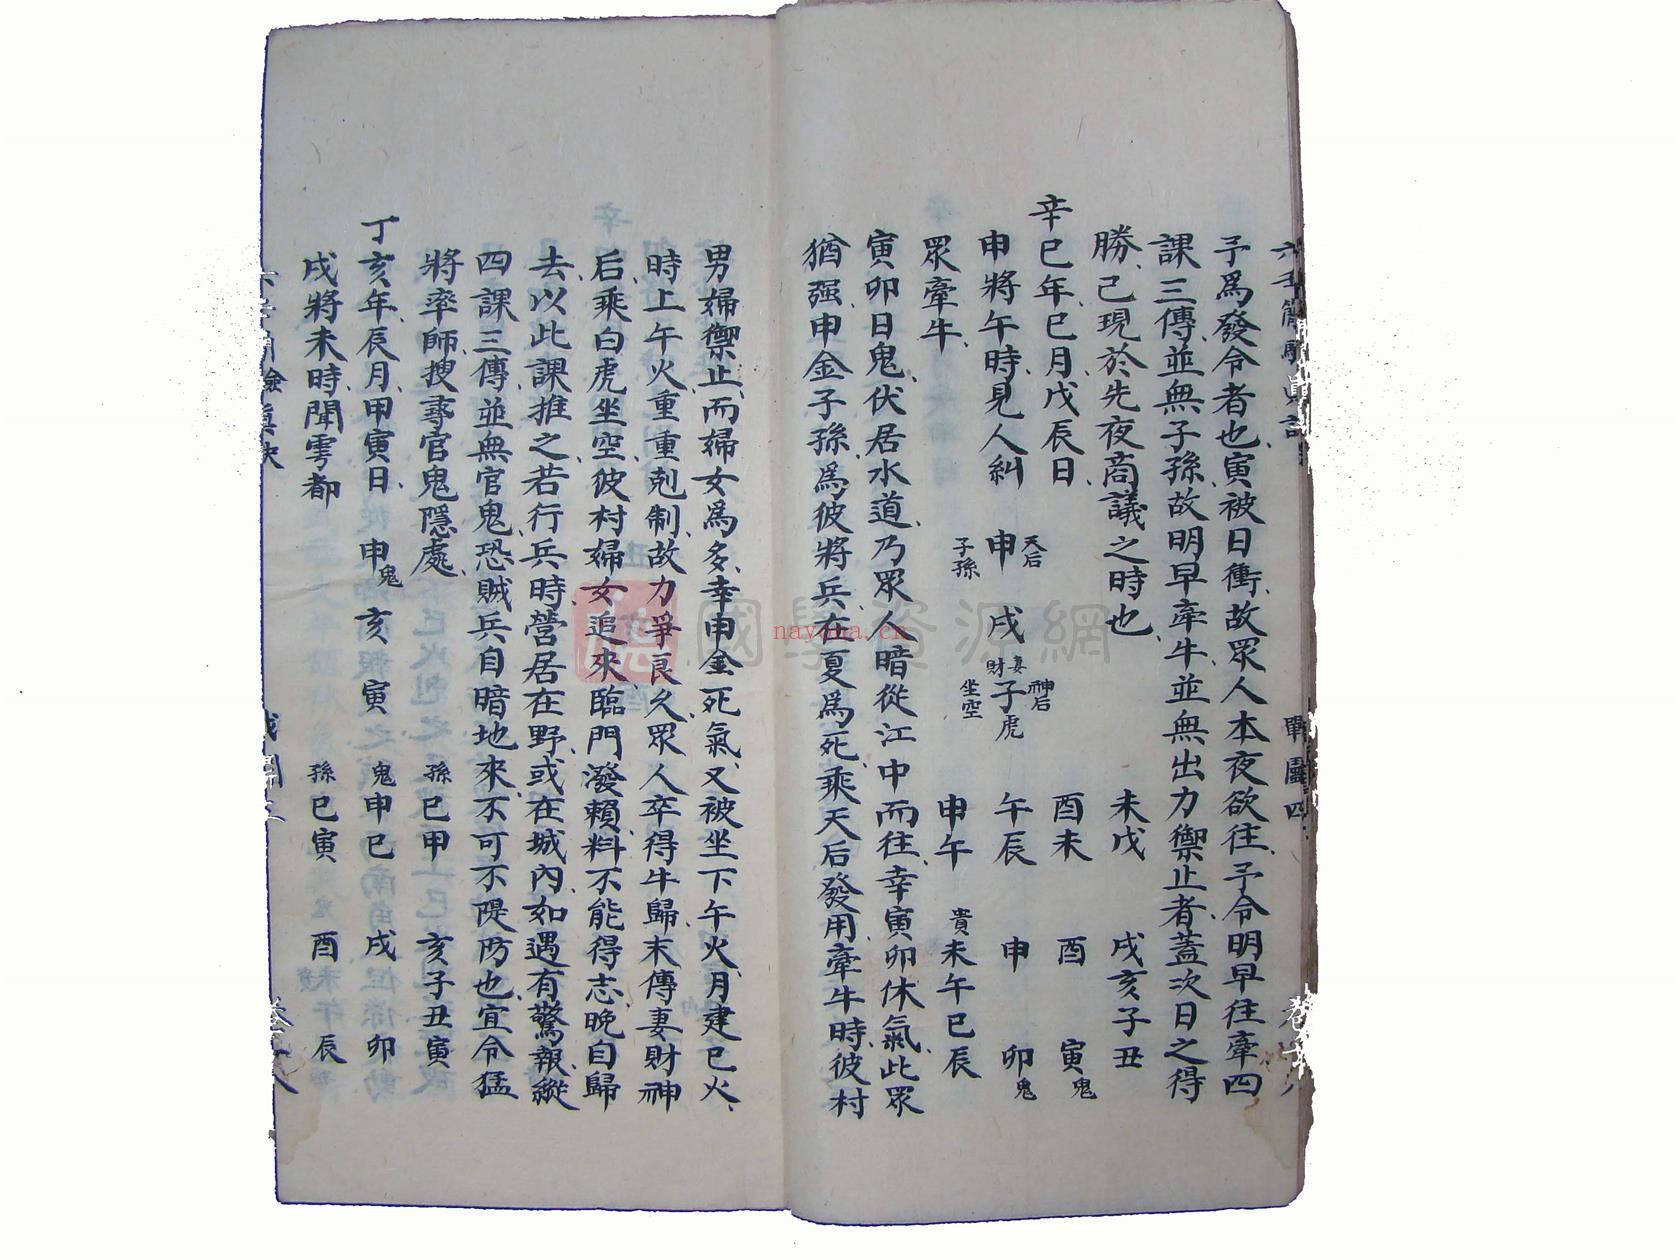 子爲發令者也寅被日衝故眾人本夜欲往予令明早往牽四
課三傳並無子孫故明早牽牛並無出力禦止者蓋次日之得
勝已現於先夜商議之時也
辛巳年巳月戊辰日
申將午時見人糾
眾牽牛
天后
申
子孫
戌
妻
財
子虎
神后
坐空
未戊
酉未
午辰
申午
戌亥子丑
酉 寅鬼
申 卯鬼
貴未午巳辰
寅卯日鬼伏居水道乃眾人暗從江中而往幸寅卯休氣此眾
猶强申金子孫爲彼將兵在夏爲死乘天后發用牽牛時彼村
男婦禦止而婦女爲多幸申金死氣又被坐下午火月建巳火
時上午火重重剋制故力爭良久眾人卒得牛歸末傳妻財神
后乘白虎坐空彼村婦女追來臨門潑賴料不能得志晚自歸
去以此課推之若行兵時營居在野或在城內如遇有驚報縱
四課三傳並無官鬼恐賊兵自暗地來不可不隄防也宜令猛
將率師搜尋官鬼隱處
丁亥年辰月甲寅日
戌將未時聞雩都
申鬼 亥 寅
孫巳甲
鬼申巳
孫巳寅
亥子丑寅
戌 卯
酉 辰
國學資源網
nayona.cn